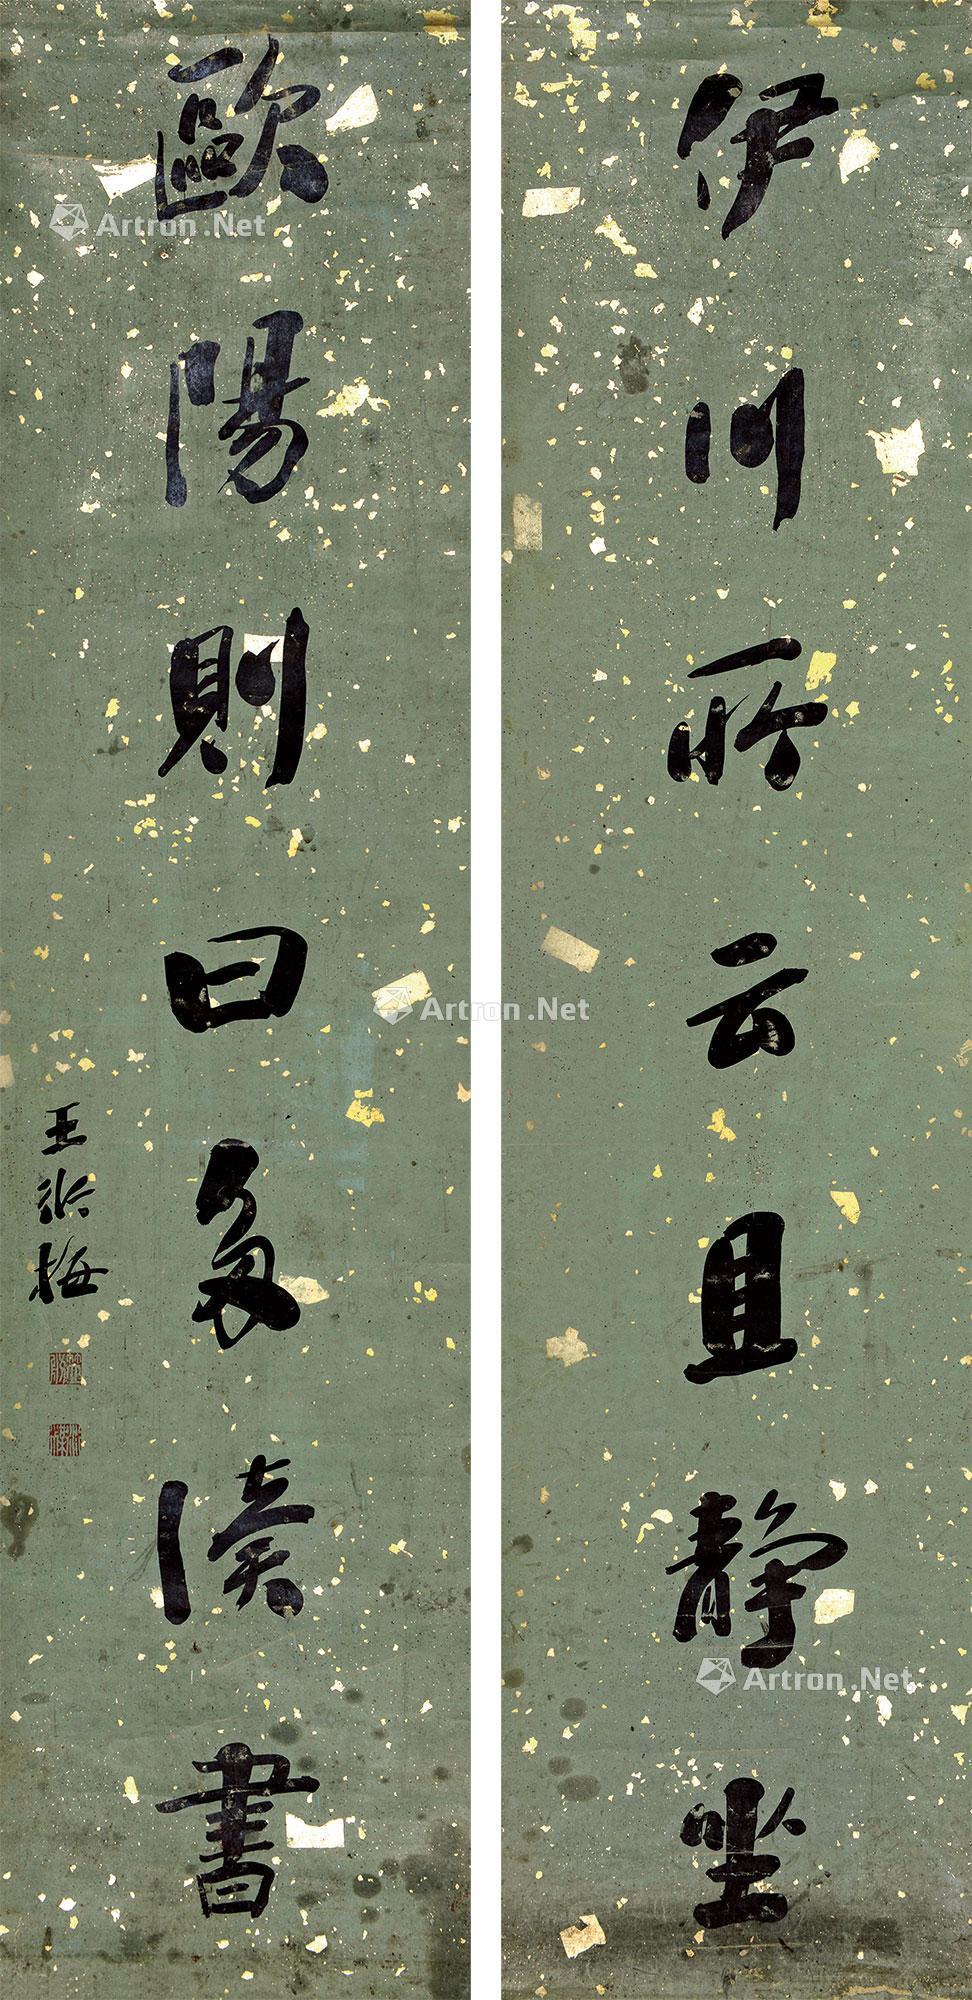 伊川所云且静坐
歐陽則曰多讀書
王 梅
Artron.Net
Artron.Net
Artron.Net